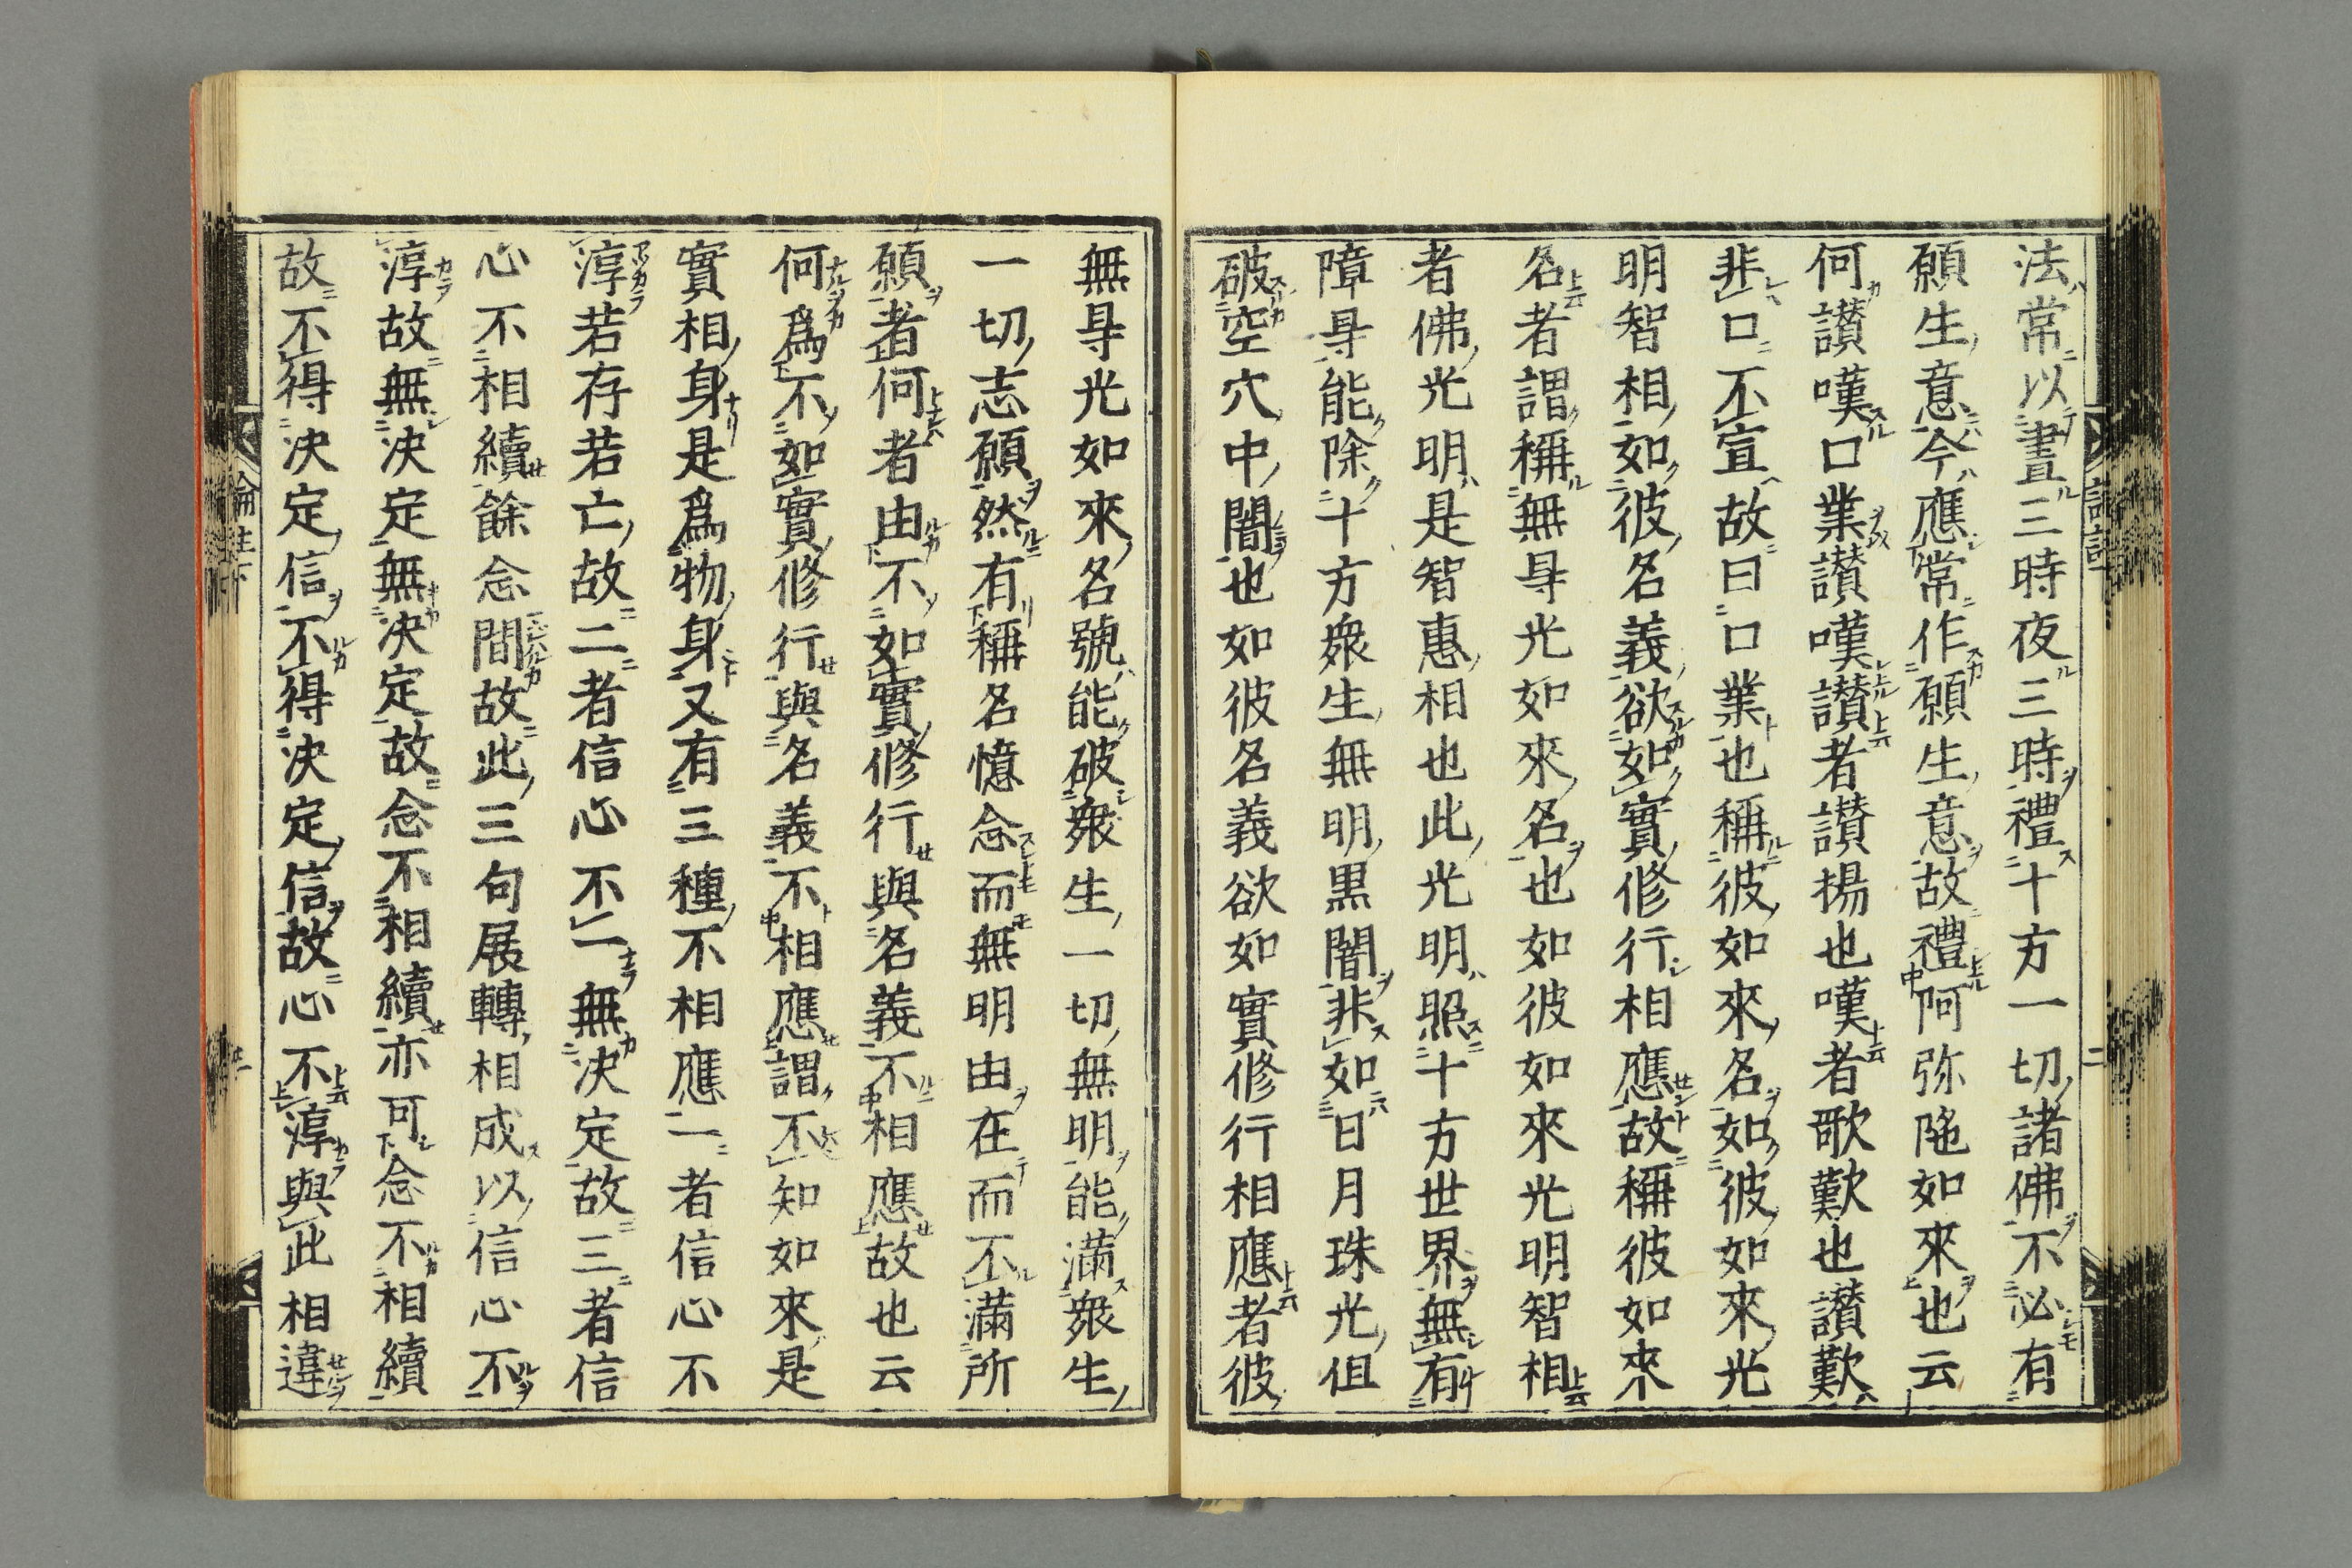 法常以晝三時夜三時禮十方一切諸佛不必有
願生意今應常作願生意故禮阿弥陁如來也云
何讃嘆口業讃嘆讃者讃揚也嘆者歌歎也讃歎
非口不宣故曰口業也稱彼如來名如彼如來光
明智相如彼名義欲如實修行相應故稱彼如來
名者謂稱無㝵光如來名也如彼如來光明智相
者佛光明是智惠相也此光明照十方世界無有
障㝵能除十方衆生無明黒闇非如日月珠光但
破空穴中闇也如彼名義欲如實修行相應者彼
無㝵光如來名號能破衆生一切無明能滿衆生
一切志願然有稱名憶念而無明由在而不滿所
願者何者由不如實修行與名義不相應故也云
何爲不如實修行與名義不相應謂不知如來是
實相身是爲物身又有三種不相應一者信心不
淳若存若亡故二者信心不一無決定故三者信
心不相續餘念間故此三句展轉相成以信心不
淳故無決定無決定故念不相續亦可念不相續
故不得決定信不得決定信故心不淳與此相違
論註下